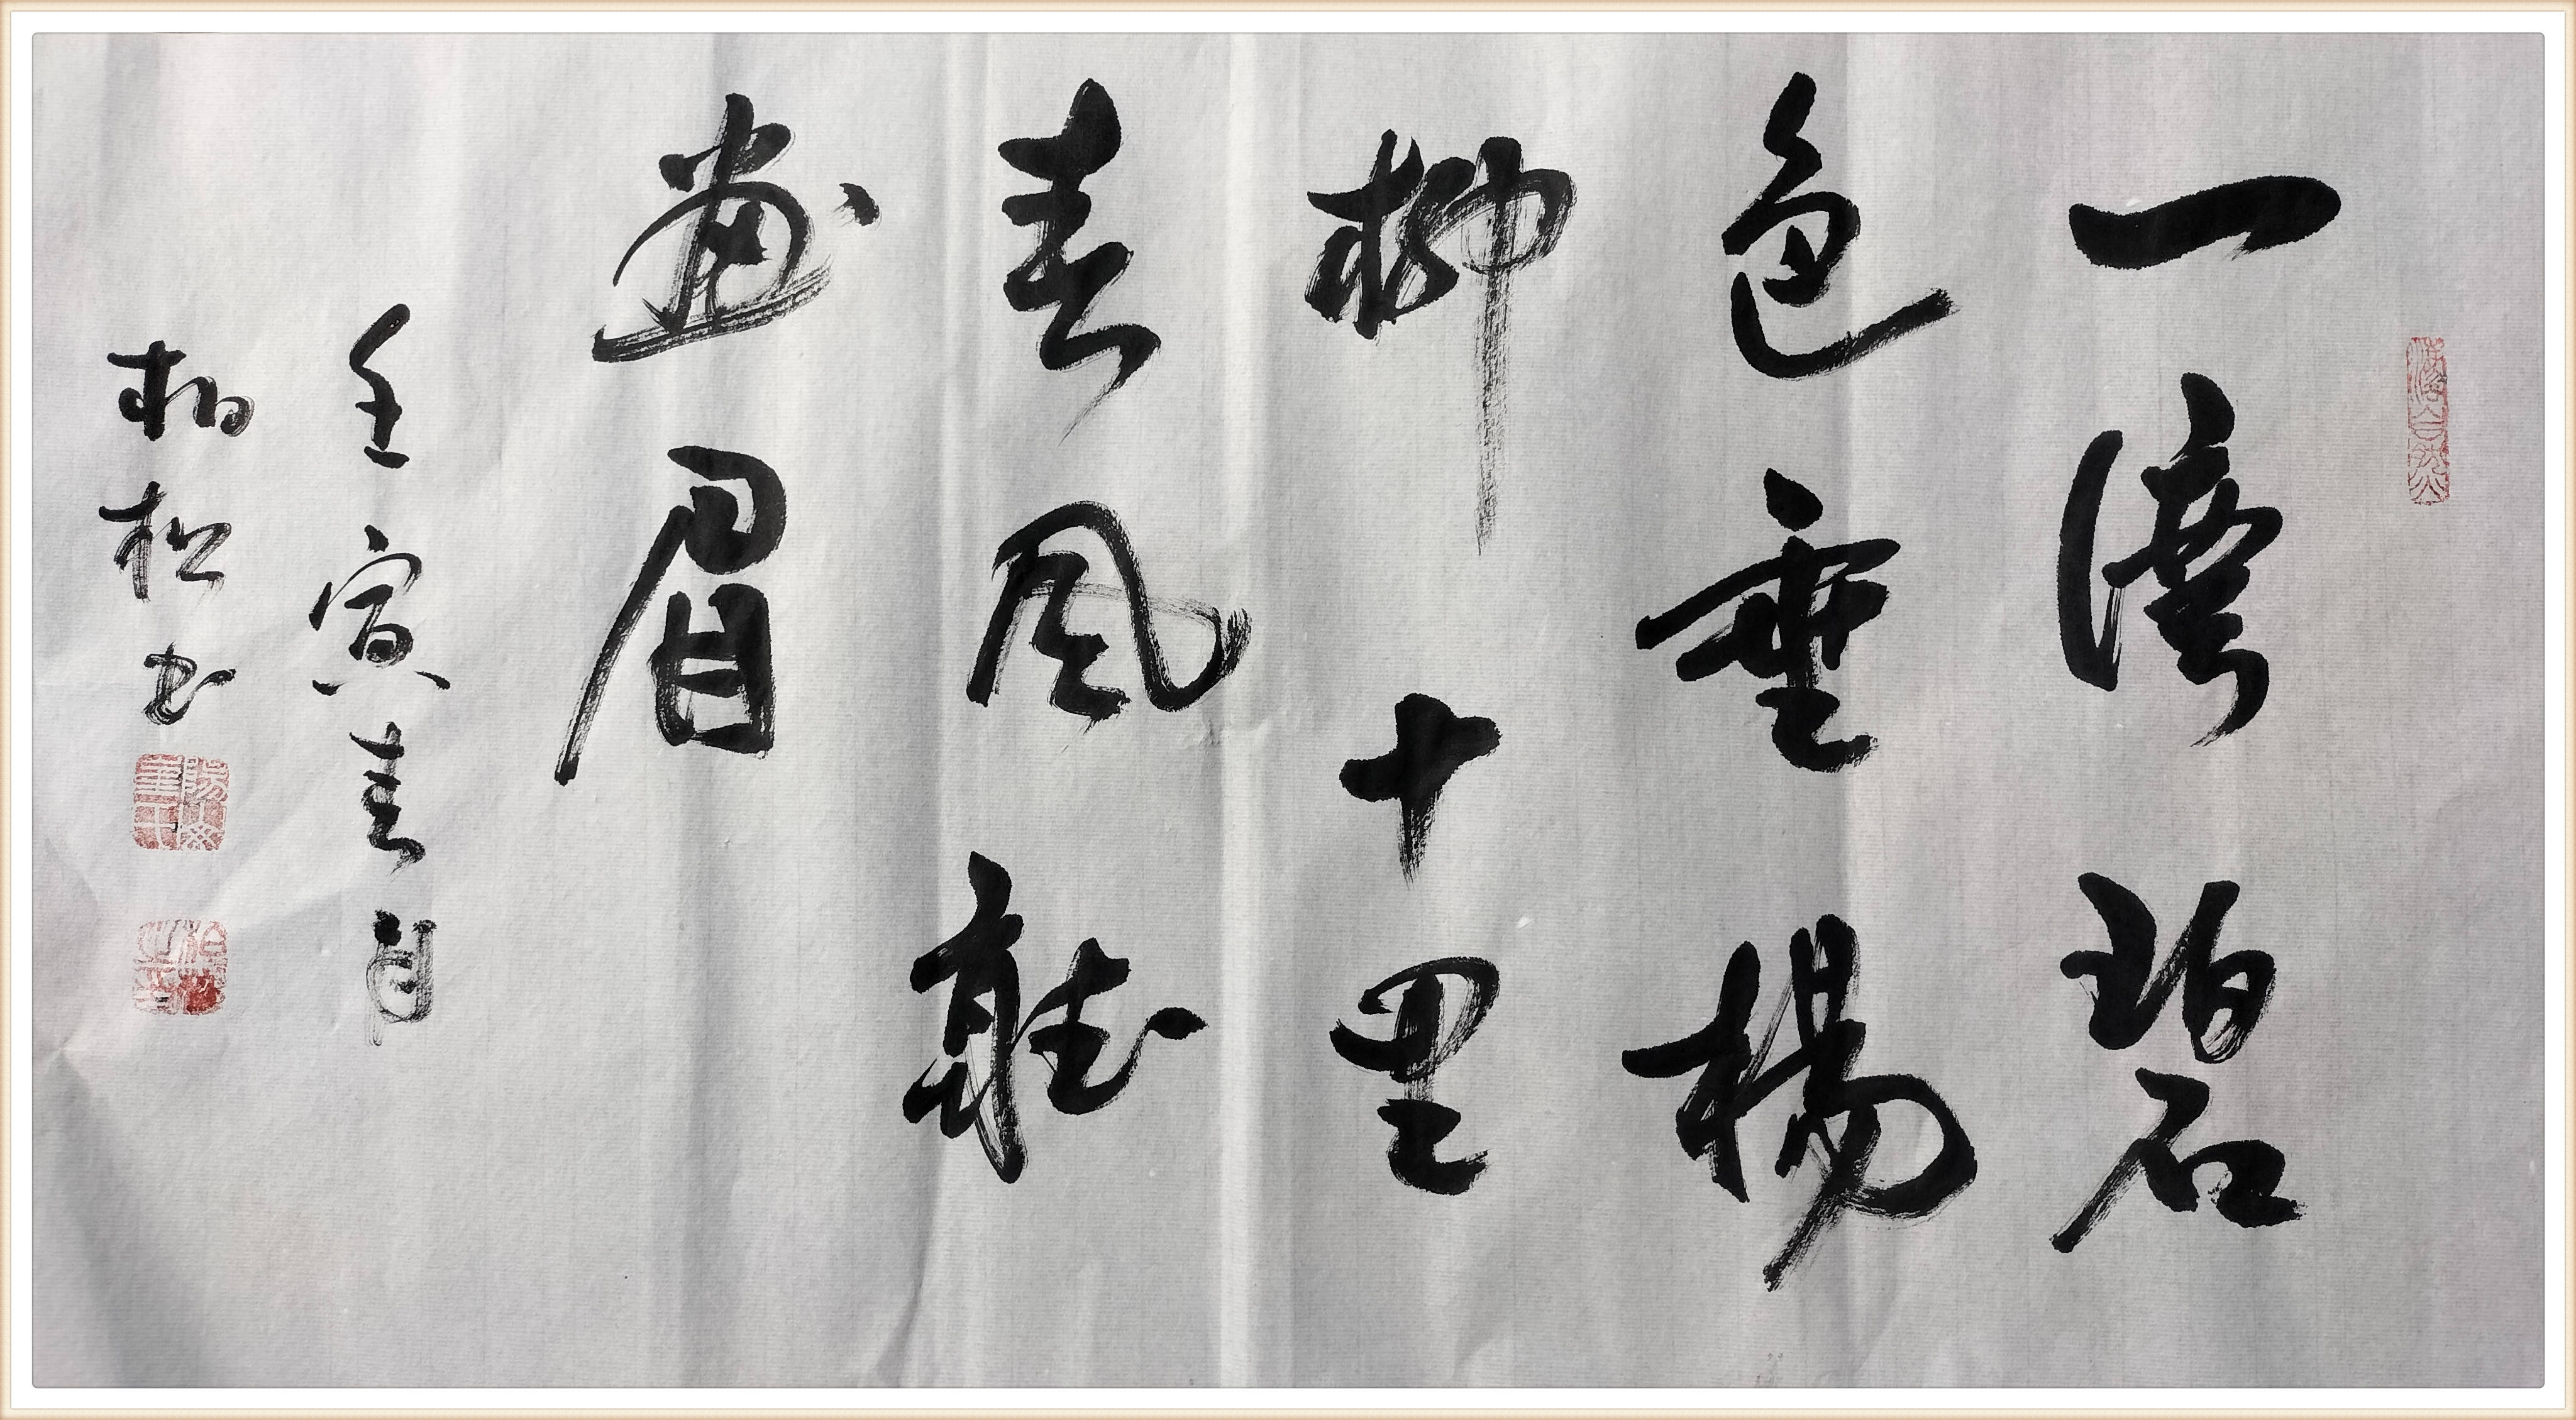 一湾碧
色垂楊
柳十里
春風誰
畫眉
壬寅春月
柏松书